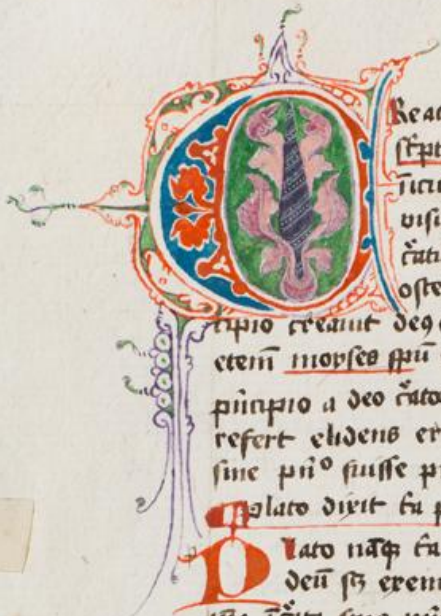 CReat
scͥpt
nicu
visi
c̄ati
oste
cipio creauit deꝯ
etem̄ moyses sp̄u
pͥncipio a deo c̄ato
refert elidens er
sine pnͥo fuisse p
plato dixit t̄a p
Plato naqꝫ t̄a
deū sꝫ exem